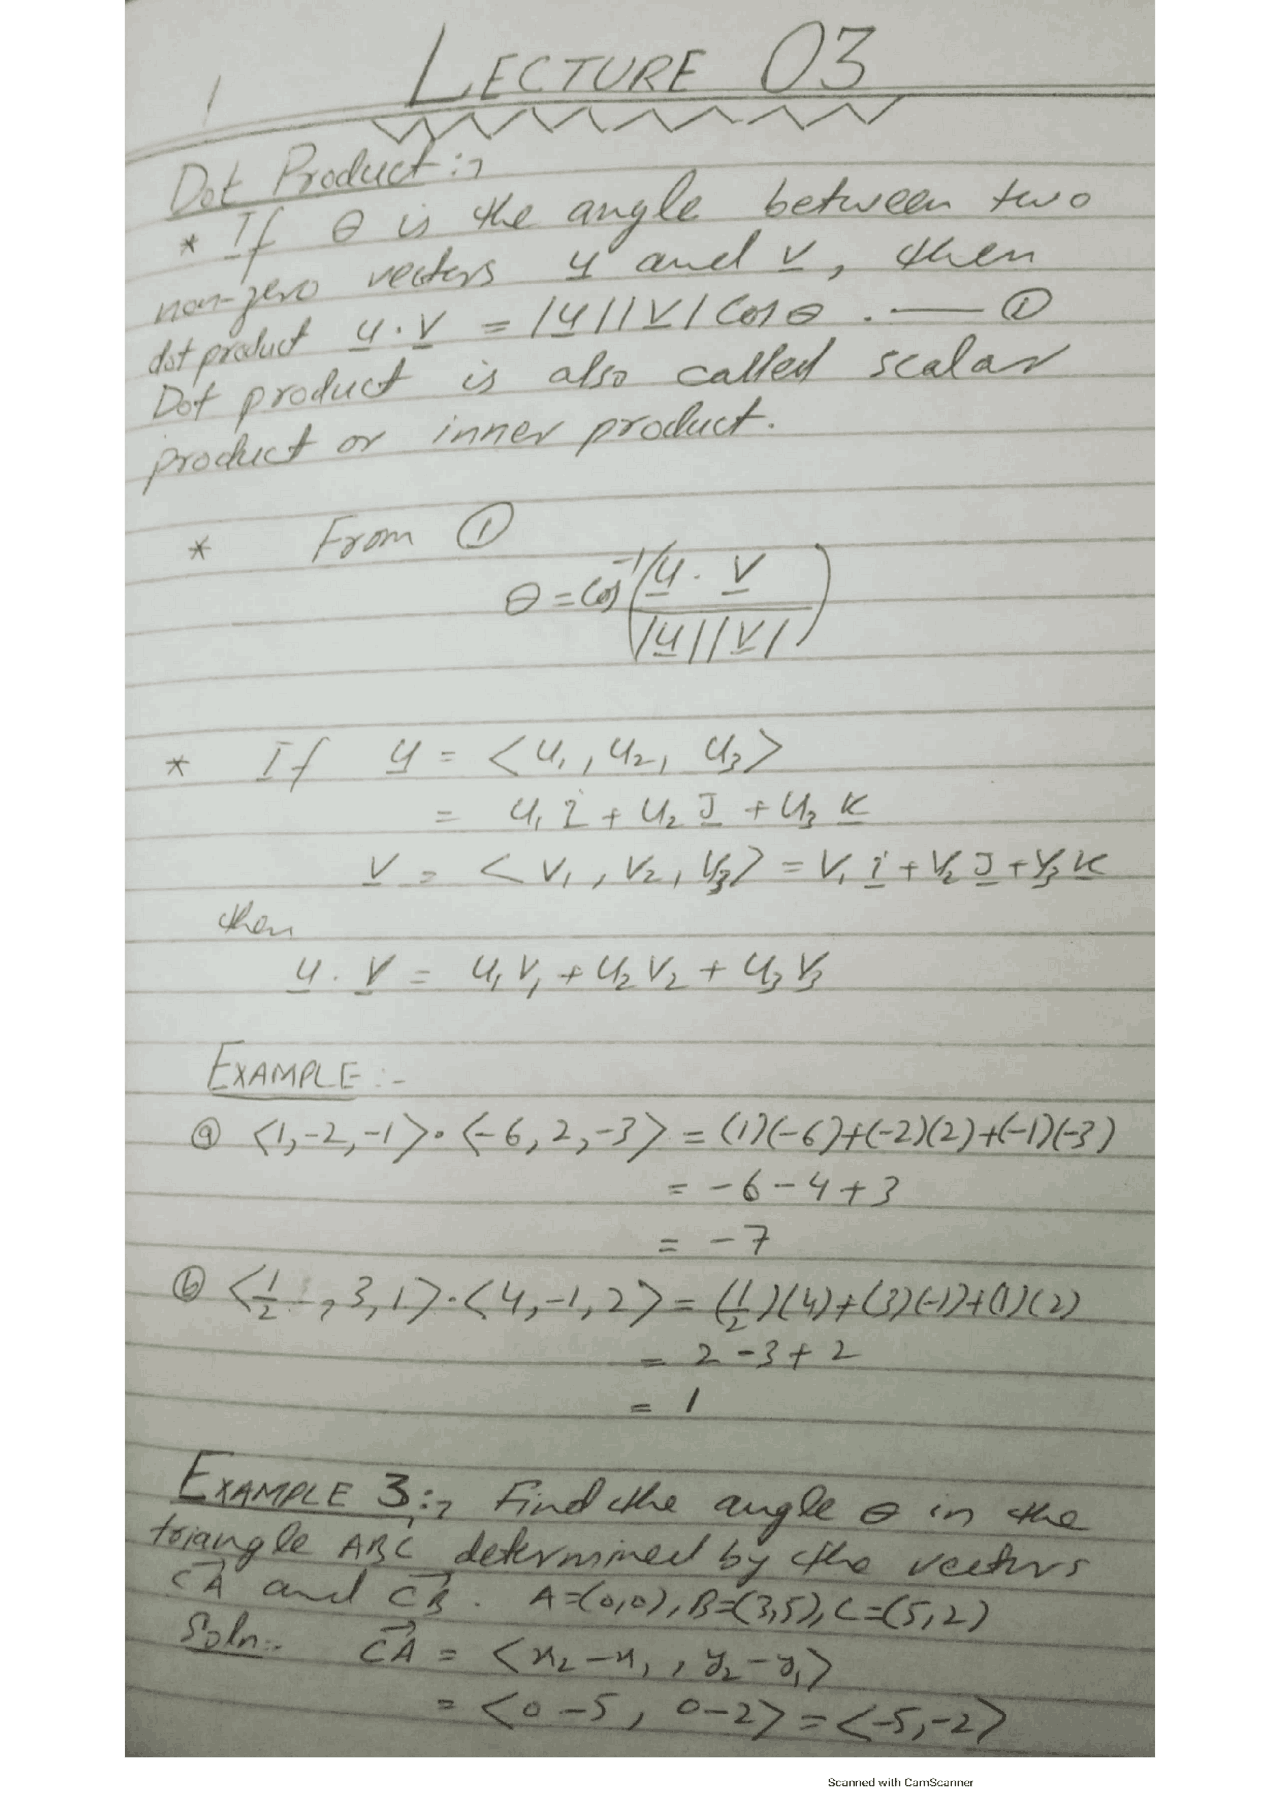 1
LECTURE 03
Dot Product :-
* If θ is the angle between two
non-zero vectors u and v, then
dot product u . v = |u||v| Cos θ . —— ①
Dot product is also called scalar
product or inner product.
* From ①
θ = Cos⁻¹(u . v / |u||v|)
* If u = <u₁, u₂, u₃>
= u₁ i + u₂ J + u₃ K
v = <v₁, v₂, v₃> = v₁ i + v₂ J + v₃ K
then
u . v = u₁v₁ + u₂v₂ + u₃v₃
EXAMPLE :-
ⓐ <1,-2,-1>.<-6,2,-3> = (1)(-6)+(-2)(2)+(-1)(-3)
= -6-4+3
= -7
ⓑ <1/2, 3, 1>.<4,-1,2> = (1/2)(4)+(3)(-1)+(1)(2)
= 2-3+2
= 1
EXAMPLE 3:- Find the angle θ in the
triangle ABC determined by the vectors
CA and CB. A=(0,0), B=(3,5), C=(5,2)
Soln:- CA = <x₂-x₁, y₂-y₁>
= <0-5, 0-2> = <-5,-2>
Scanned with CamScanner